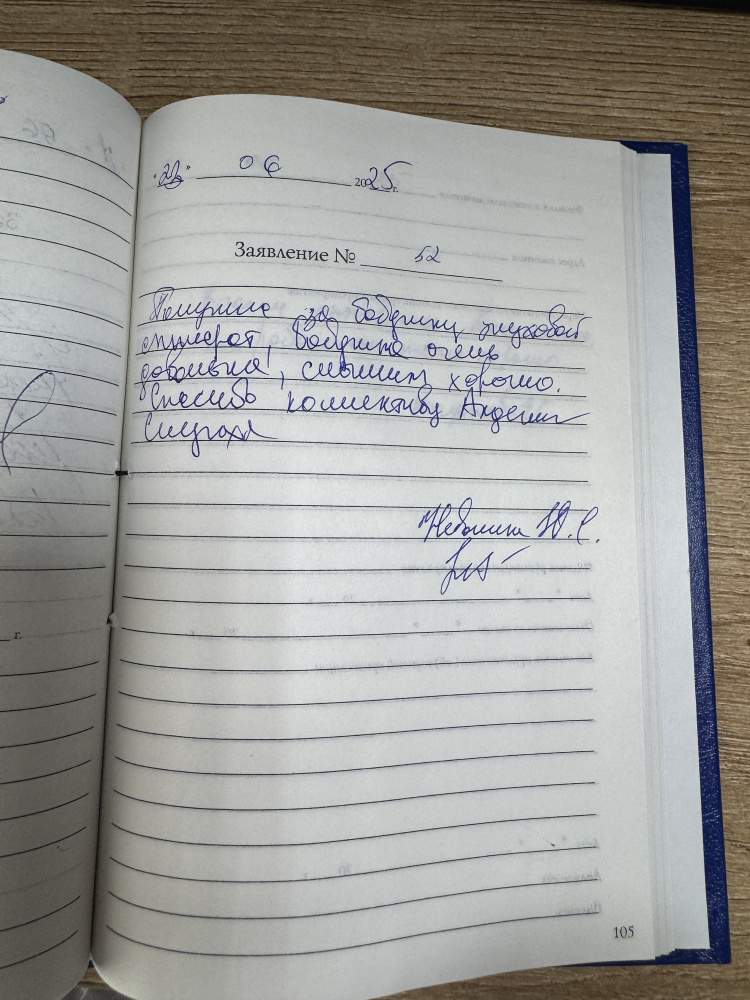 "23" 06 2025 г.
Заявление № 52
Получила за бабушку слуховой
аппарат, бабушка очень
довольна, слышим хорошо.
Спасибо коллективу Академии
Слуха
Ю. С.
г.
105